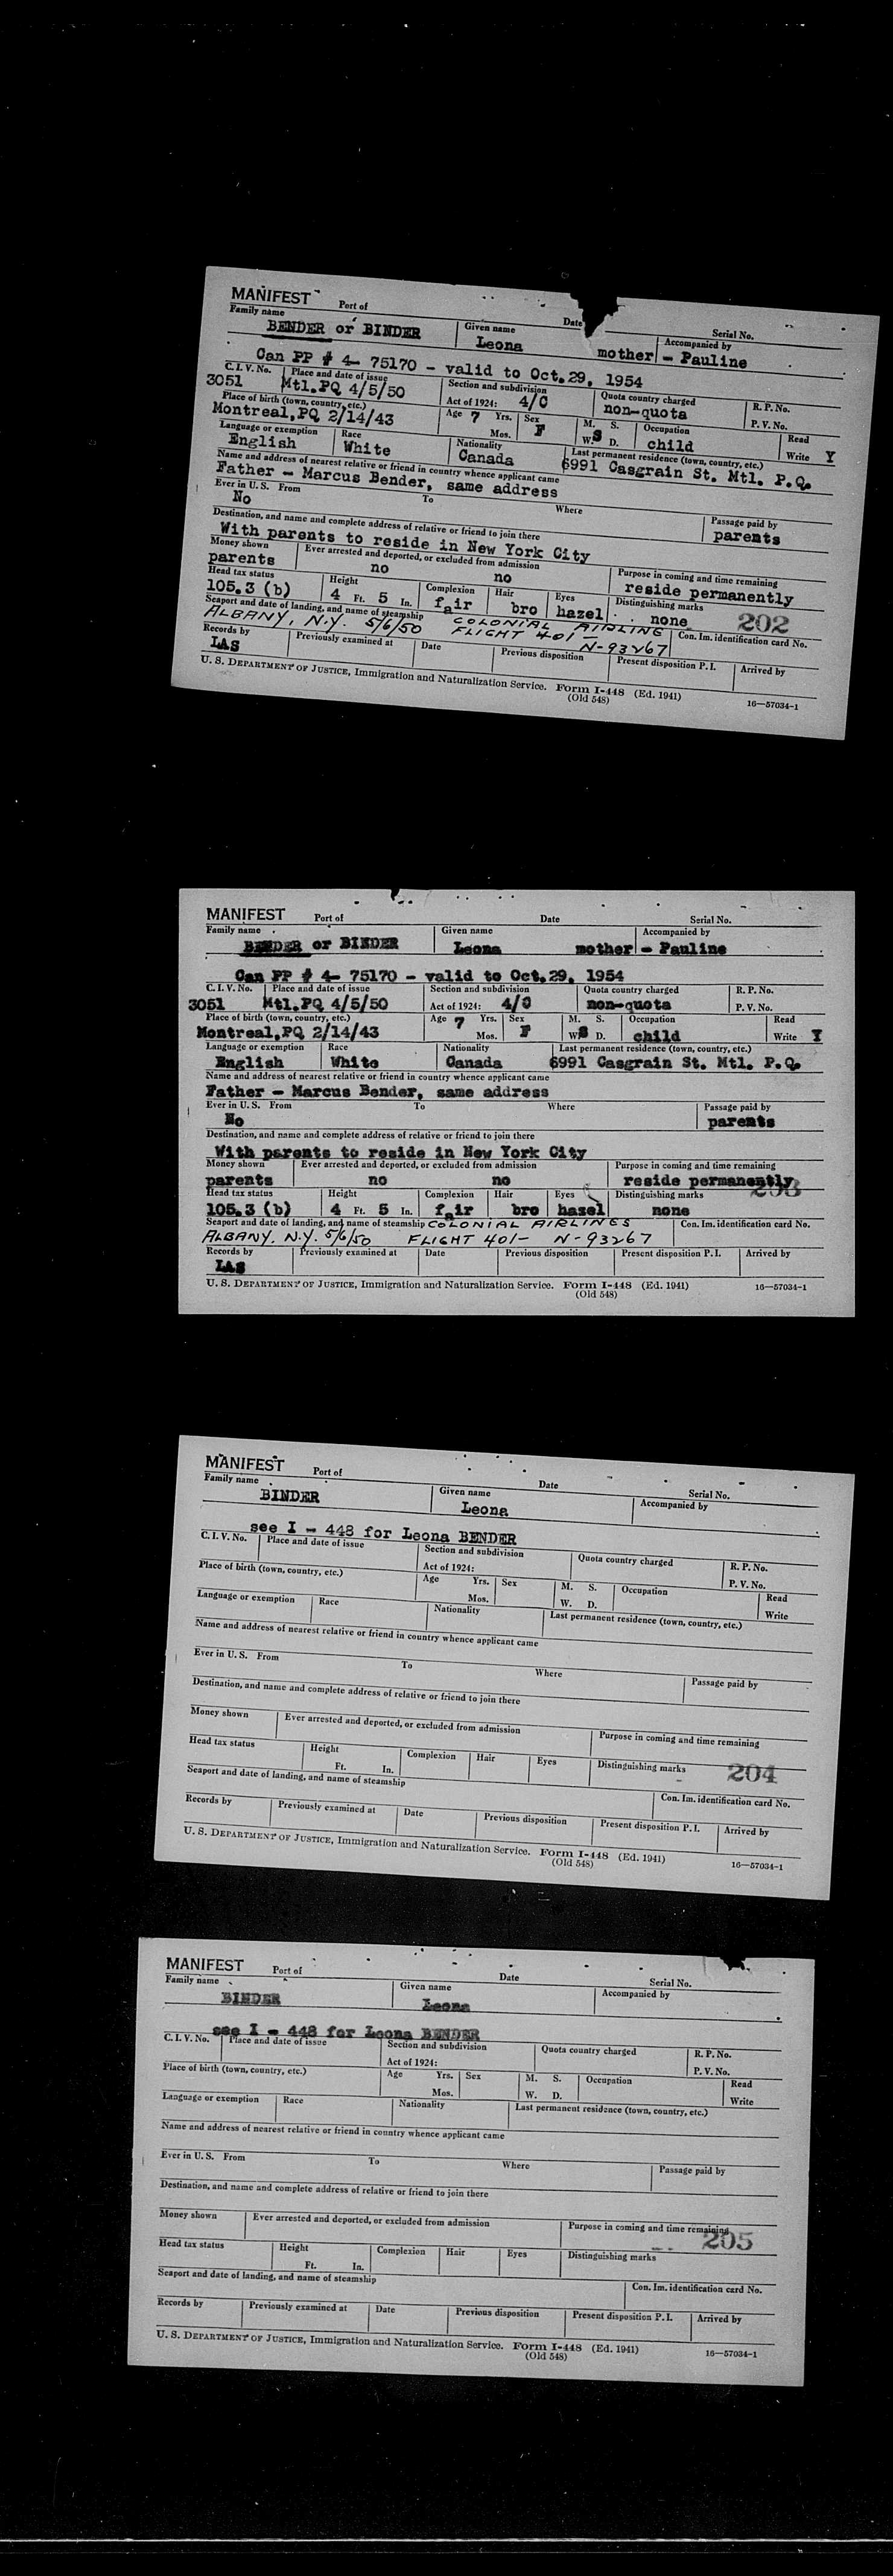 MANIFEST Port of Date Serial No.
Family name Given name Accompanied by
BENDER or BINDER Leona mother - Pauline
Can PP # 4- 75170 - valid to Oct.29, 1954
C. I. V. No. Place and date of issue Section and subdivision Quota country charged R. P. No.
3051 Mtl.PQ 4/5/50 Act of 1924: 4/C non-quota P. V. No.
Place of birth (town, country, etc.) Age 7 Yrs. Sex M. S. Occupation Read
Montreal,PQ 2/14/43 Mos. F W. S D. child Write Y
Language or exemption Race Nationality Last permanent residence (town, country, etc.)
English White Canada 6991 Casgrain St. Mtl. P.Q.
Name and address of nearest relative or friend in country whence applicant came
Father - Marcus Bender, same address
Ever in U. S. From To Where Passage paid by
No parents
Destination, and name and complete address of relative or friend to join there
With parents to reside in New York City
Money shown Ever arrested and deported, or excluded from admission Purpose in coming and time remaining
parents no no reside permanently
Head tax status Height Complexion Hair Eyes Distinguishing marks
105.3 (b) 4 Ft. 5 In. fair bro hazel none 202
Seaport and date of landing, and name of steamship COLONIAL AIRLINE Con. Im. identification card No.
ALBANY, N.Y. 5/6/50 FLIGHT 401- N-93267
Records by Previously examined at Date Previous disposition Present disposition P. I. Arrived by
IAS
U. S. DEPARTMENT OF JUSTICE, Immigration and Naturalization Service. Form I-448 (Ed. 1941) 16—57034-1
(Old 548)
MANIFEST Port of Date Serial No.
Family name Given name Accompanied by
BENDER or BINDER Leona mother - Pauline
Can PP # 4- 75170 - valid to Oct.29, 1954
C. I. V. No. Place and date of issue Section and subdivision Quota country charged R. P. No.
3051 Mtl.PQ 4/5/50 Act of 1924: 4/C non-quota P. V. No.
Place of birth (town, country, etc.) Age 7 Yrs. Sex M. S. Occupation Read
Montreal,PQ 2/14/43 Mos. F W. S D. child Write Y
Language or exemption Race Nationality Last permanent residence (town, country, etc.)
English White Canada 6991 Casgrain St. Mtl. P.Q.
Name and address of nearest relative or friend in country whence applicant came
Father - Marcus Bender, same address
Ever in U. S. From To Where Passage paid by
No parents
Destination, and name and complete address of relative or friend to join there
With parents to reside in New York City
Money shown Ever arrested and deported, or excluded from admission Purpose in coming and time remaining
parents no no reside permanently
203
Head tax status Height Complexion Hair Eyes Distinguishing marks
105.3 (b) 4 Ft. 5 In. fair bro hazel none
Seaport and date of landing, and name of steamship COLONIAL AIRLINES Con. Im. identification card No.
ALBANY, N.Y. 5/6/50 FLIGHT 401- N-93267
Records by Previously examined at Date Previous disposition Present disposition P. I. Arrived by
IAS
U. S. DEPARTMENT OF JUSTICE, Immigration and Naturalization Service. Form I-448 (Ed. 1941) 16—57034-1
(Old 548)
MANIFEST Port of Date Serial No.
Family name Given name Accompanied by
BINDER Leona
see I - 448 for Leona BENDER
C. I. V. No. Place and date of issue Section and subdivision Quota country charged R. P. No.
Act of 1924: P. V. No.
Place of birth (town, country, etc.) Age Yrs. Sex M. S. Occupation Read
Mos. W. D. Write
Language or exemption Race Nationality Last permanent residence (town, country, etc.)
Name and address of nearest relative or friend in country whence applicant came
Ever in U. S. From To Where Passage paid by
Destination, and name and complete address of relative or friend to join there
Money shown Ever arrested and deported, or excluded from admission Purpose in coming and time remaining
Head tax status Height Complexion Hair Eyes Distinguishing marks 204
Ft. In.
Seaport and date of landing, and name of steamship Con. Im. identification card No.
Records by Previously examined at Date Previous disposition Present disposition P. I. Arrived by
U. S. DEPARTMENT OF JUSTICE, Immigration and Naturalization Service. Form I-448 (Ed. 1941) 16—57034-1
(Old 548)
MANIFEST Port of Date Serial No.
Family name Given name Accompanied by
BINDER Leona
see I - 448 for Leona BENDER
C. I. V. No. Place and date of issue Section and subdivision Quota country charged R. P. No.
Act of 1924: P. V. No.
Place of birth (town, country, etc.) Age Yrs. Sex M. S. Occupation Read
Mos. W. D. Write
Language or exemption Race Nationality Last permanent residence (town, country, etc.)
Name and address of nearest relative or friend in country whence applicant came
Ever in U. S. From To Where Passage paid by
Destination, and name and complete address of relative or friend to join there
Money shown Ever arrested and deported, or excluded from admission Purpose in coming and time remaining
205
Head tax status Height Complexion Hair Eyes Distinguishing marks
Ft. In.
Seaport and date of landing, and name of steamship Con. Im. identification card No.
Records by Previously examined at Date Previous disposition Present disposition P. I. Arrived by
U. S. DEPARTMENT OF JUSTICE, Immigration and Naturalization Service. Form I-448 (Ed. 1941) 16—57034-1
(Old 548)